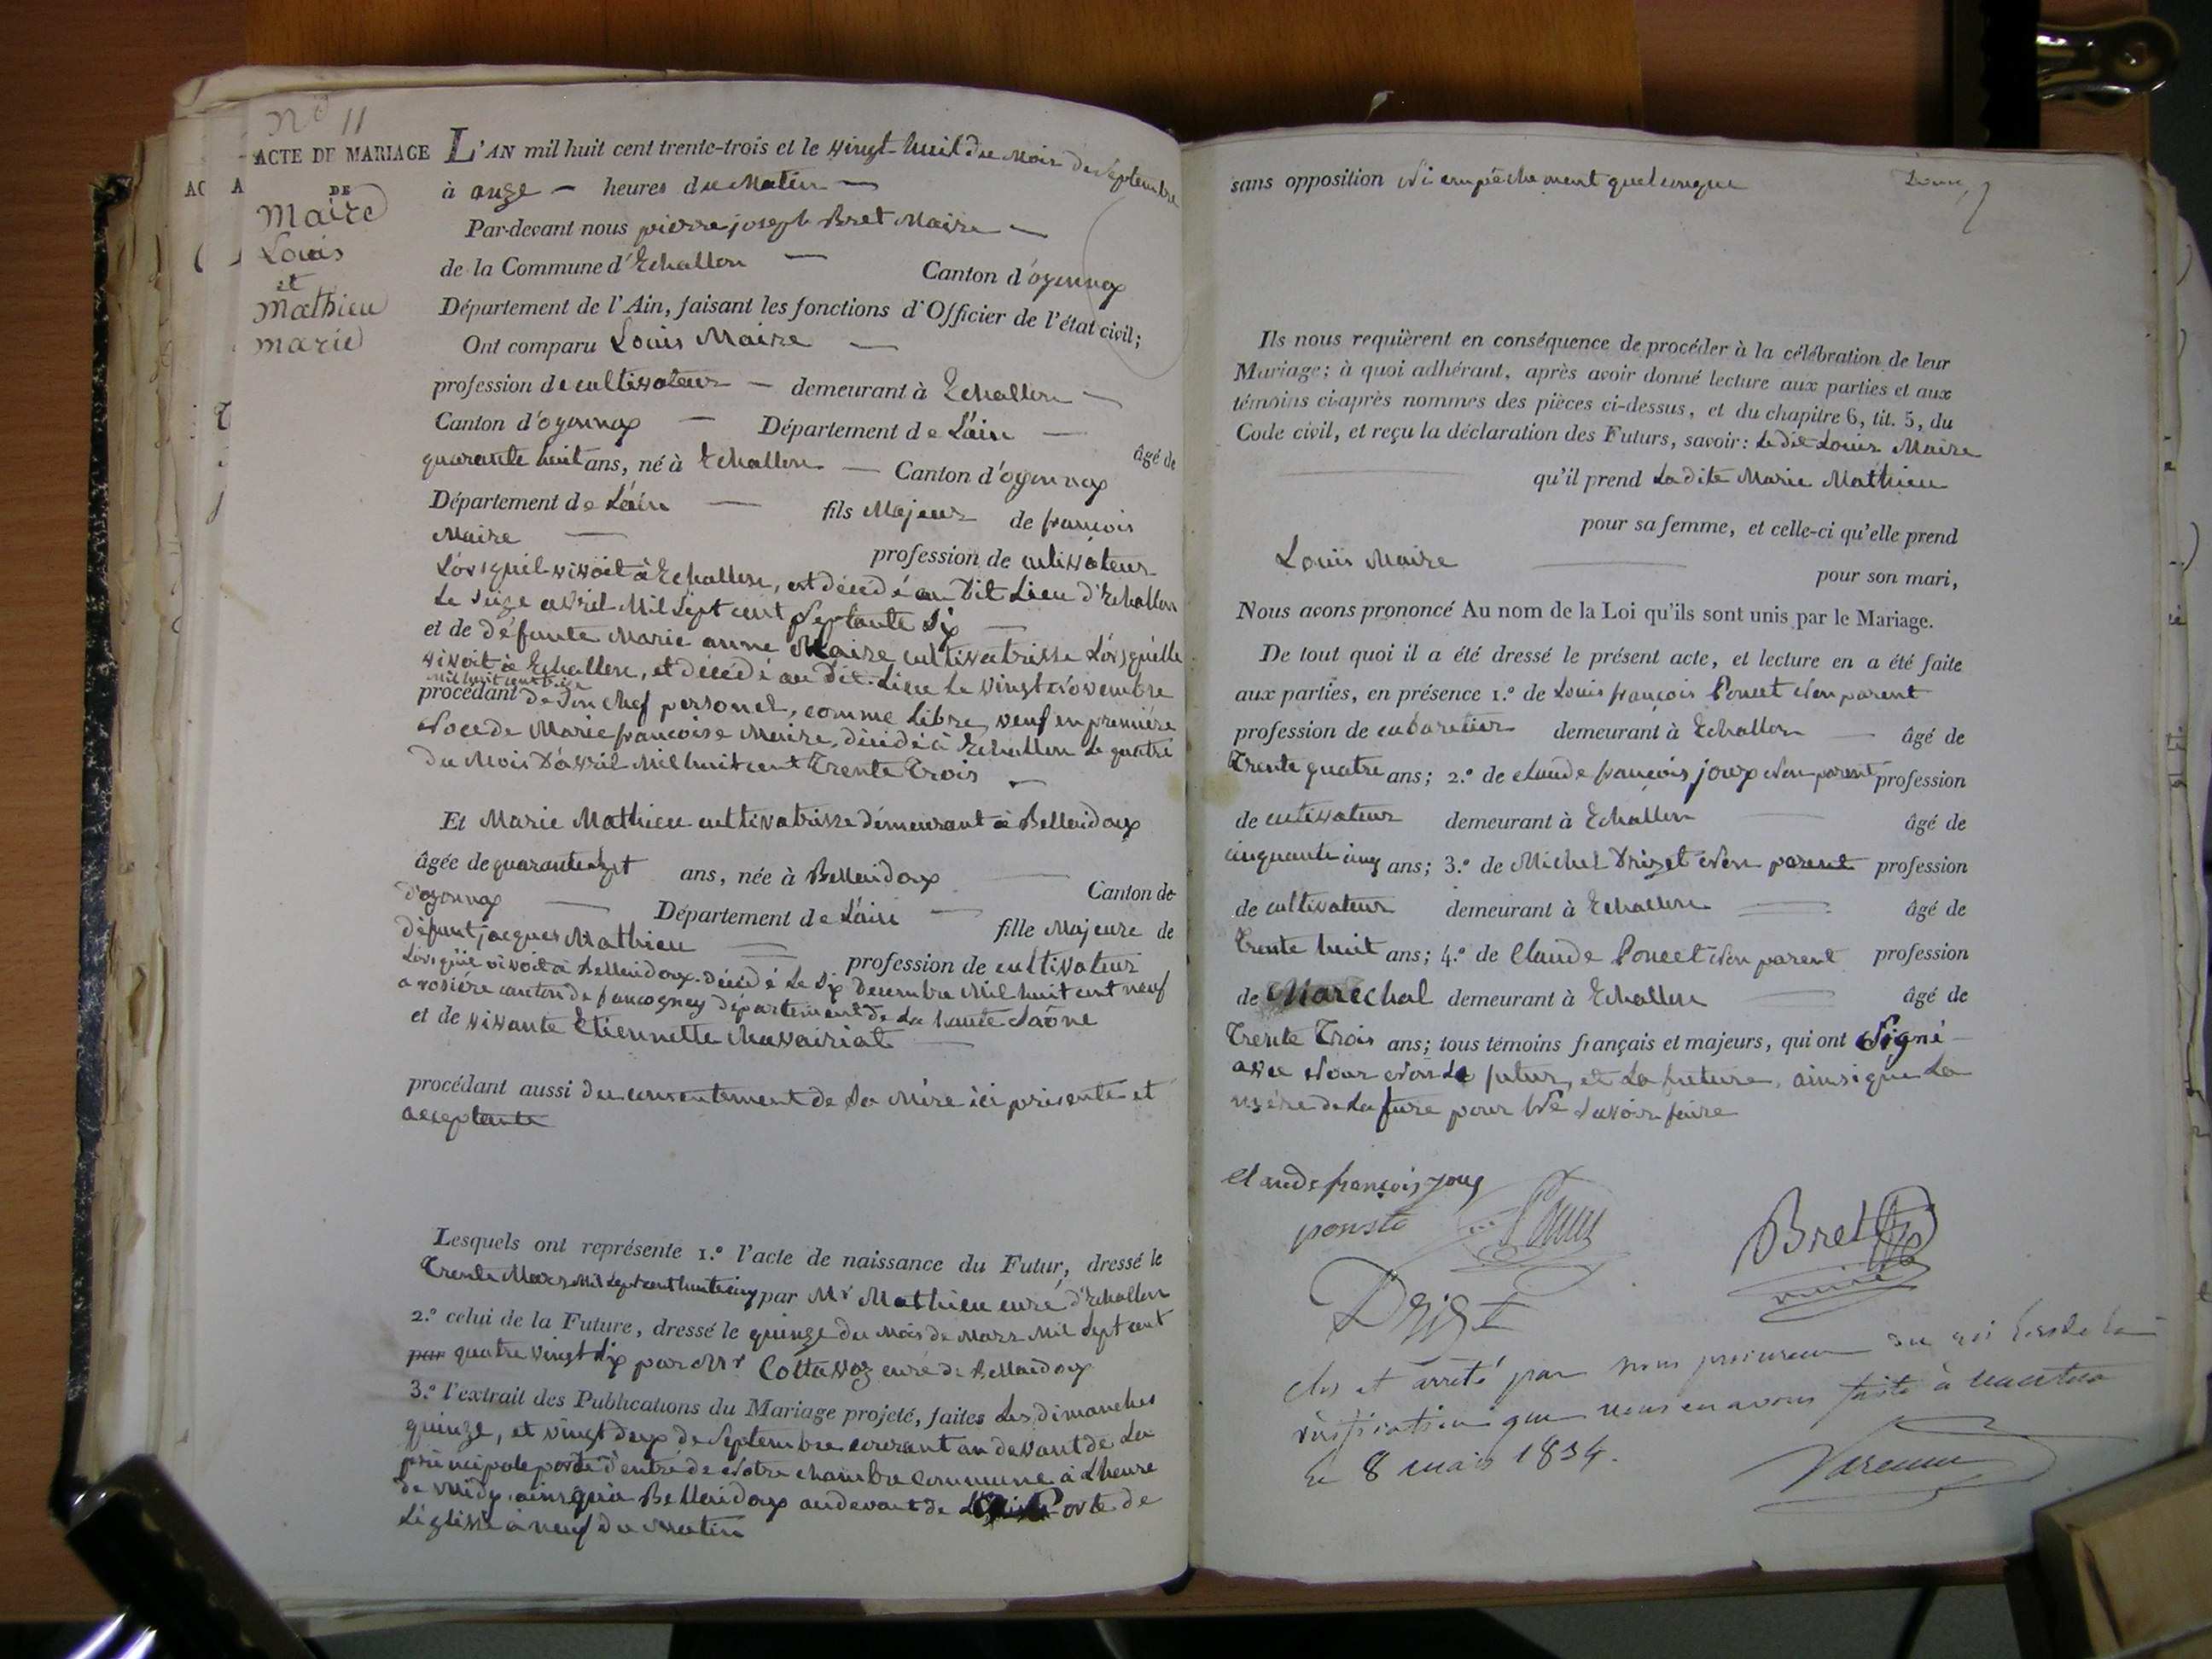 N° 11
ACTE DE MARIAGE
DE
Maire
Louis
et
Mathieu
marie
L'AN mil huit cent trente-trois et le vingt-huit du mois de Septembre
à onze — heures du Matin —
Par-devant nous pierre joseph Bret Maire —
de la Commune d'Echallon — Canton d'oyonnax
Département de l'Ain, faisant les fonctions d'Officier de l'état civil;
Ont comparu Louis Maire —
profession de cultivateur — demeurant à Echallon —
Canton d'oyonnax — Département de L'ain — âgé de
quarante huit ans, né à Echallon — Canton d'oyonnax
Département de L'ain — fils Majeur de françois
Maire — profession de cultivateur
Lorsquil vivoit à Echallon, est décédé au Dit Lieu d'Echallon
Le seize avril Mil Sept cent Septante Six —
et de défunte Marie anne Maire cultivatrisse Lorsquelle
vivoit à Echallon, et décédé au Dit Lieu Le vingt novembre
mil huit cent
procédant de Son chef personel, comme Libre, veuf en première
Noce de Marie françoise Maire, décédé à Echallon Le quatre
du Mois D'avril Mil huit cent trente trois —
Et Marie Mathieu cultivatrisse démeurant à Bellaidoux
âgée de quarante Sept ans, née à Bellaidoux — Canton de
d'oyonnax — Département de L'ain — fille Majeure de
défunt jacques Mathieu — profession de cultivateur
Lorsquil vivoit à Bellaidoux. décédé Le Six Decembre Mil huit cent neuf
a rosiére canton de faucogney département de La haute Saône
et de vivante Etiennette Chavairiat —
procédant aussi du consentement de Sa Mère ici présente et
acceptante
Lesquels ont représente 1.° l'acte de naissance du Futur, dressé le
Trente Mars Mil Sept cent huitecinq par Mr Mathieu curé d'Echallon
2.° celui de la Future, dressé le quinze du Mois de Mars Mil Sept cent
par quatre vingt Six par Mr Cottavoz curé de Bellaidoux
3.° l'extrait des Publications du Mariage projeté, faites Les dimanches
quinze, et vingt deux de Septembre courant au devant de La
principale porte d'entré de Notre chambre Commune à L'heure
de midy ainsi qu'à Bellaidoux au devant de La Porte de
L'églisse à neuf du Matin
sans opposition Ni empêchement quelconque
Ils nous requièrent en conséquence de procéder à la célébration de leur
Mariage; à quoi adhérant, après avoir donné lecture aux parties et aux
témoins ci-après nommes des pièces ci-dessus, et du chapitre 6, tit. 5, du
Code civil, et reçu la déclaration des Futurs, savoir: Le dit Louis Maire
qu'il prend Ladite Marie Mathieu
pour sa femme, et celle-ci qu'elle prend
Louis Maire — pour son mari,
Nous avons prononcé Au nom de la Loi qu'ils sont unis par le Mariage.
De tout quoi il a été dressé le présent acte, et lecture en a été faite
aux parties, en présence 1.° de Louis françois Poncet Non parent
profession de cabaretier demeurant à Echallon — âgé de
Trente quatre ans; 2.° de claude françois joux Non parent profession
de cultivateur demeurant à Echallon âgé de
cinquante cinq ans; 3.° de Michel Drizet Non parent profession
de cultivateur demeurant à Echallon — âgé de
Trente huit ans; 4.° de Claude Poncet Non parent profession
de Marechal demeurant à Echallon — âgé de
Trente Trois ans; tous témoins français et majeurs, qui ont Signé —
avec Nous Non Le futur, et La future, ainsi que La
mère de La fure pour Ne Savoir faire
Claude françois joux
ponste
Bret
Drizet
clos et arreté par nous procureur du roi
vérification que nous en avons faite à nantua
le 8 mars 1834.